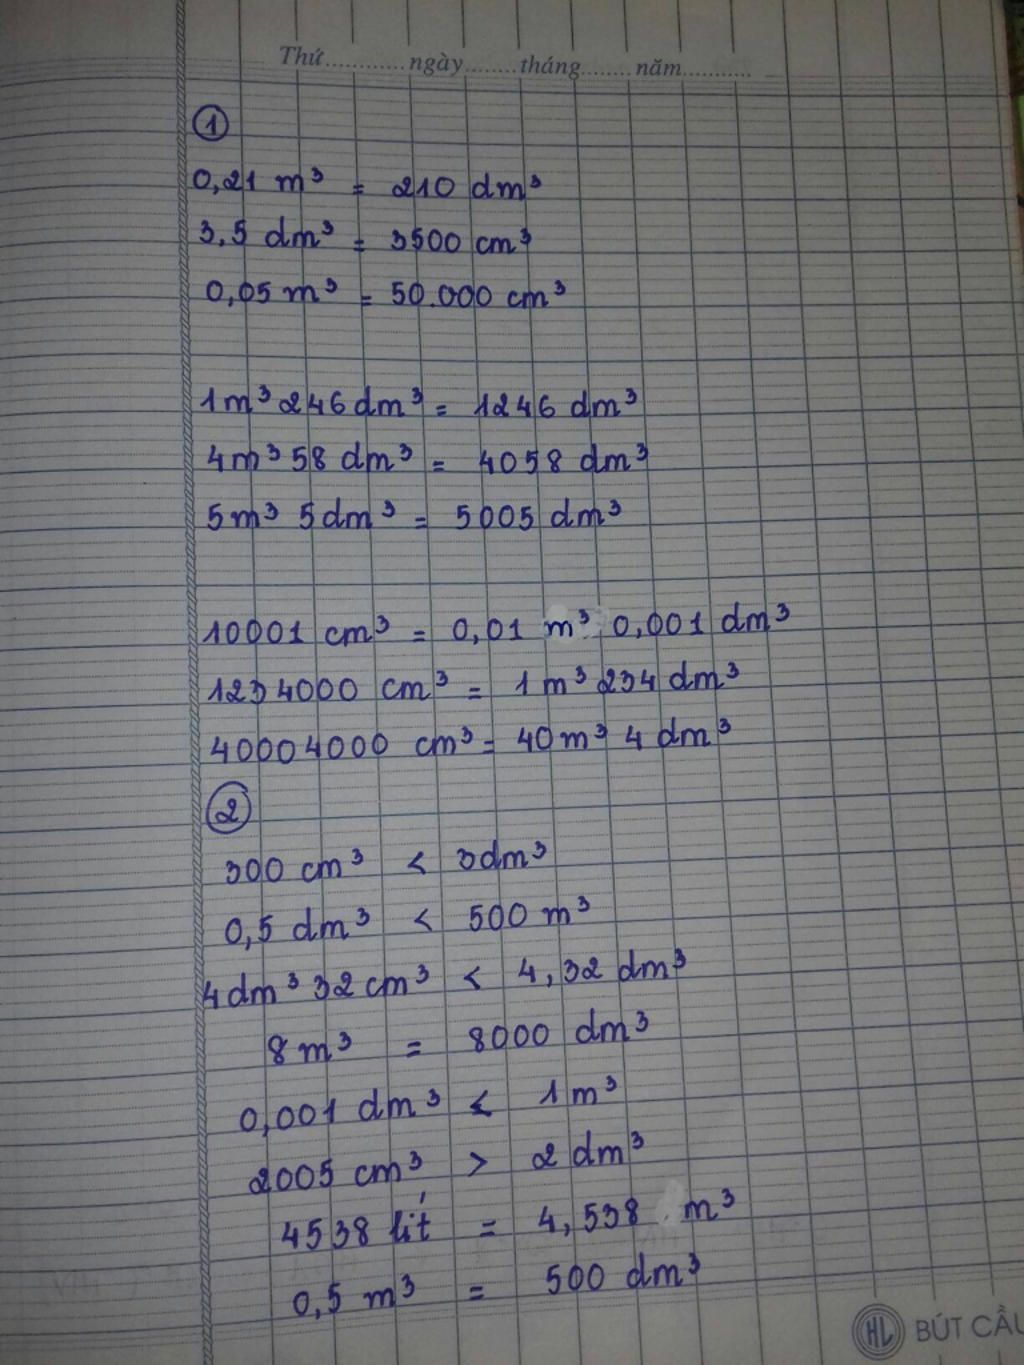 Thứ............ngày........tháng........năm...........
1
0,21 m³ = 210 dm³
3,5 dm³ = 3500 cm³
0,05 m³ = 50.000 cm³
1m³ 246 dm³ = 1246 dm³
4m³ 58 dm³ = 4058 dm³
5m³ 5dm³ = 5005 dm³
10001 cm³ = 0,01 m³ 0,001 dm³
1234000 cm³ = 1 m³ 234 dm³
40004000 cm³ = 40m³ 4 dm³
2
300 cm³ < 3dm³
0,5 dm³ < 500 m³
4dm³ 32 cm³ < 4,32 dm³
8 m³ = 8000 dm³
0,001 dm³ < 1 m³
2005 cm³ > 2 dm³
4538 lít = 4,538 m³
0,5 m³ = 500 dm³
HL BÚT CẦU